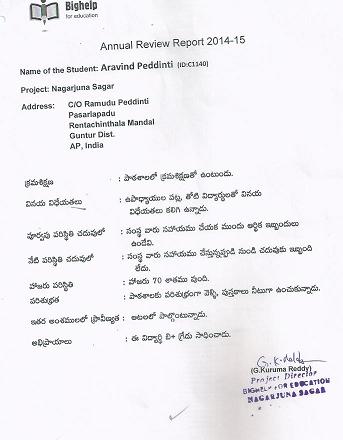 Bighelp
for education
Annual Review Report 2014-15
Name of the Student: Aravind Peddinti (ID:C1140)
Project: Nagarjuna Sagar
Address: C/O Ramudu Peddinti
Pasarlapadu
Rentachinthala Mandal
Guntur Dist.
AP, India
క్రమశిక్షణ : పాఠశాలలో క్రమశిక్షణతో ఉంటుండు.
వినయ విధేయతలు : ఉపాధ్యాయుల పట్ల, తోటి విద్యార్థులతో వినయ
విధేయతలు కలిగి ఉన్నాడు.
పూర్వపు పరిస్థితి చదువులో : సంస్థ వారు సహాయము చేయక ముందు ఆర్థిక ఇబ్బందులు
ఉండేవి.
నేటి పరిస్థితి చదువులో : సంస్థ వారు సహాయము చేస్తున్నప్పటి నుండి చదువుకు ఇబ్బంది
లేదు.
హాజరు పరిస్థితి : హాజరు 70 శాతము వుంది.
పరిశుభ్రత : పాఠశాలకు పరిశుభ్రంగా వెళ్ళి, పుస్తకాలు నీటుగా ఉంచుకున్నాడు.
ఇతర అంశములలో ప్రావీణ్యత : ఆటలలో పాల్గొంటున్నాడు.
అభిప్రాయాలు : ఈ విద్యార్థి బి+ గ్రేడు సాధించాడు.
(G.Kuruma Reddy)
Project Director
BIGHELP FOR EDUCATION
NAGARJUNA SAGAR